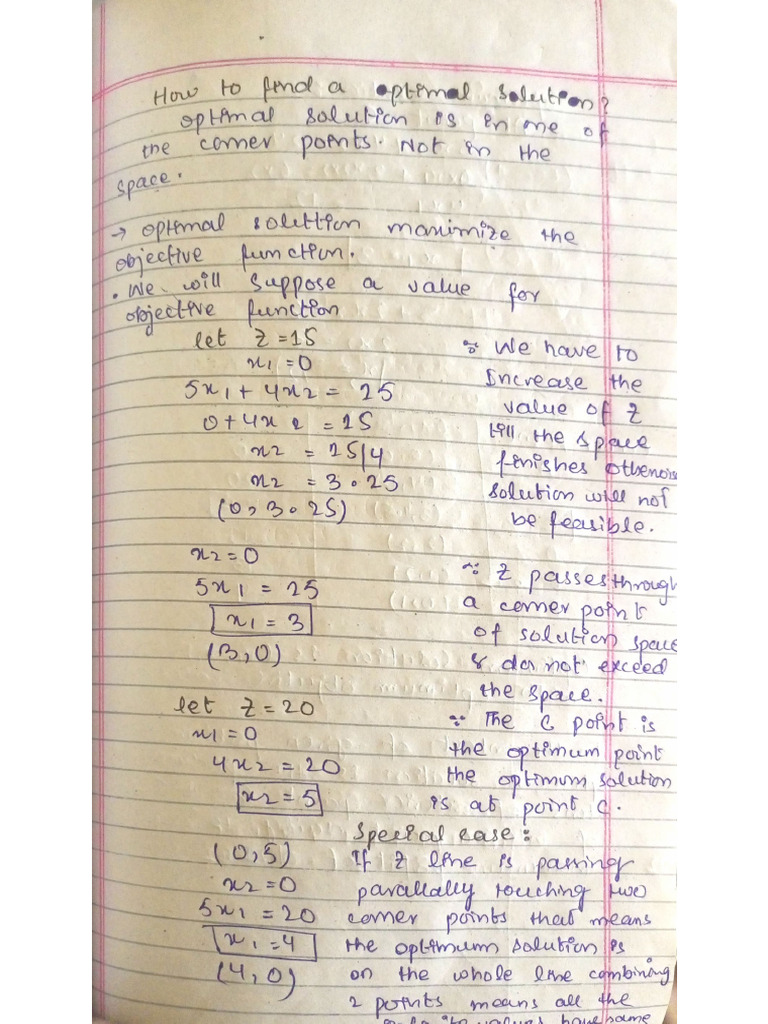 How to find a optimal solution?
optimal solution is in one of
the corner points. Not in the
space.
→ optimal soluttion maximize the
objective function.
• We will suppose a value for
objective function
let Z = 15
x1 = 0
5x1 + 4x2 = 25
0 + 4x2 = 15
x2 = 15/4
x2 = 3.25
(0, 3.25)
x2 = 0
5x1 = 15
x1 = 3
(3,0)
let Z = 20
x1 = 0
4x2 = 20
x2 = 5
(0,5)
x2 = 0
5x1 = 20
x1 = 4
(4,0)
∵ We have to
Increase the
value of Z
till the space
finishes
solution will not
be feasible.
∵ Z passes through
a corner point
of solution space
& does not exceed
the space.
∵ The C point is
the optimum point
the optimum solution
is at point C.
Special case:
If Z line is passing
parallaly touching two
corner points that means
the optimum solution is
on the whole line combining
2 points means all the
values have same